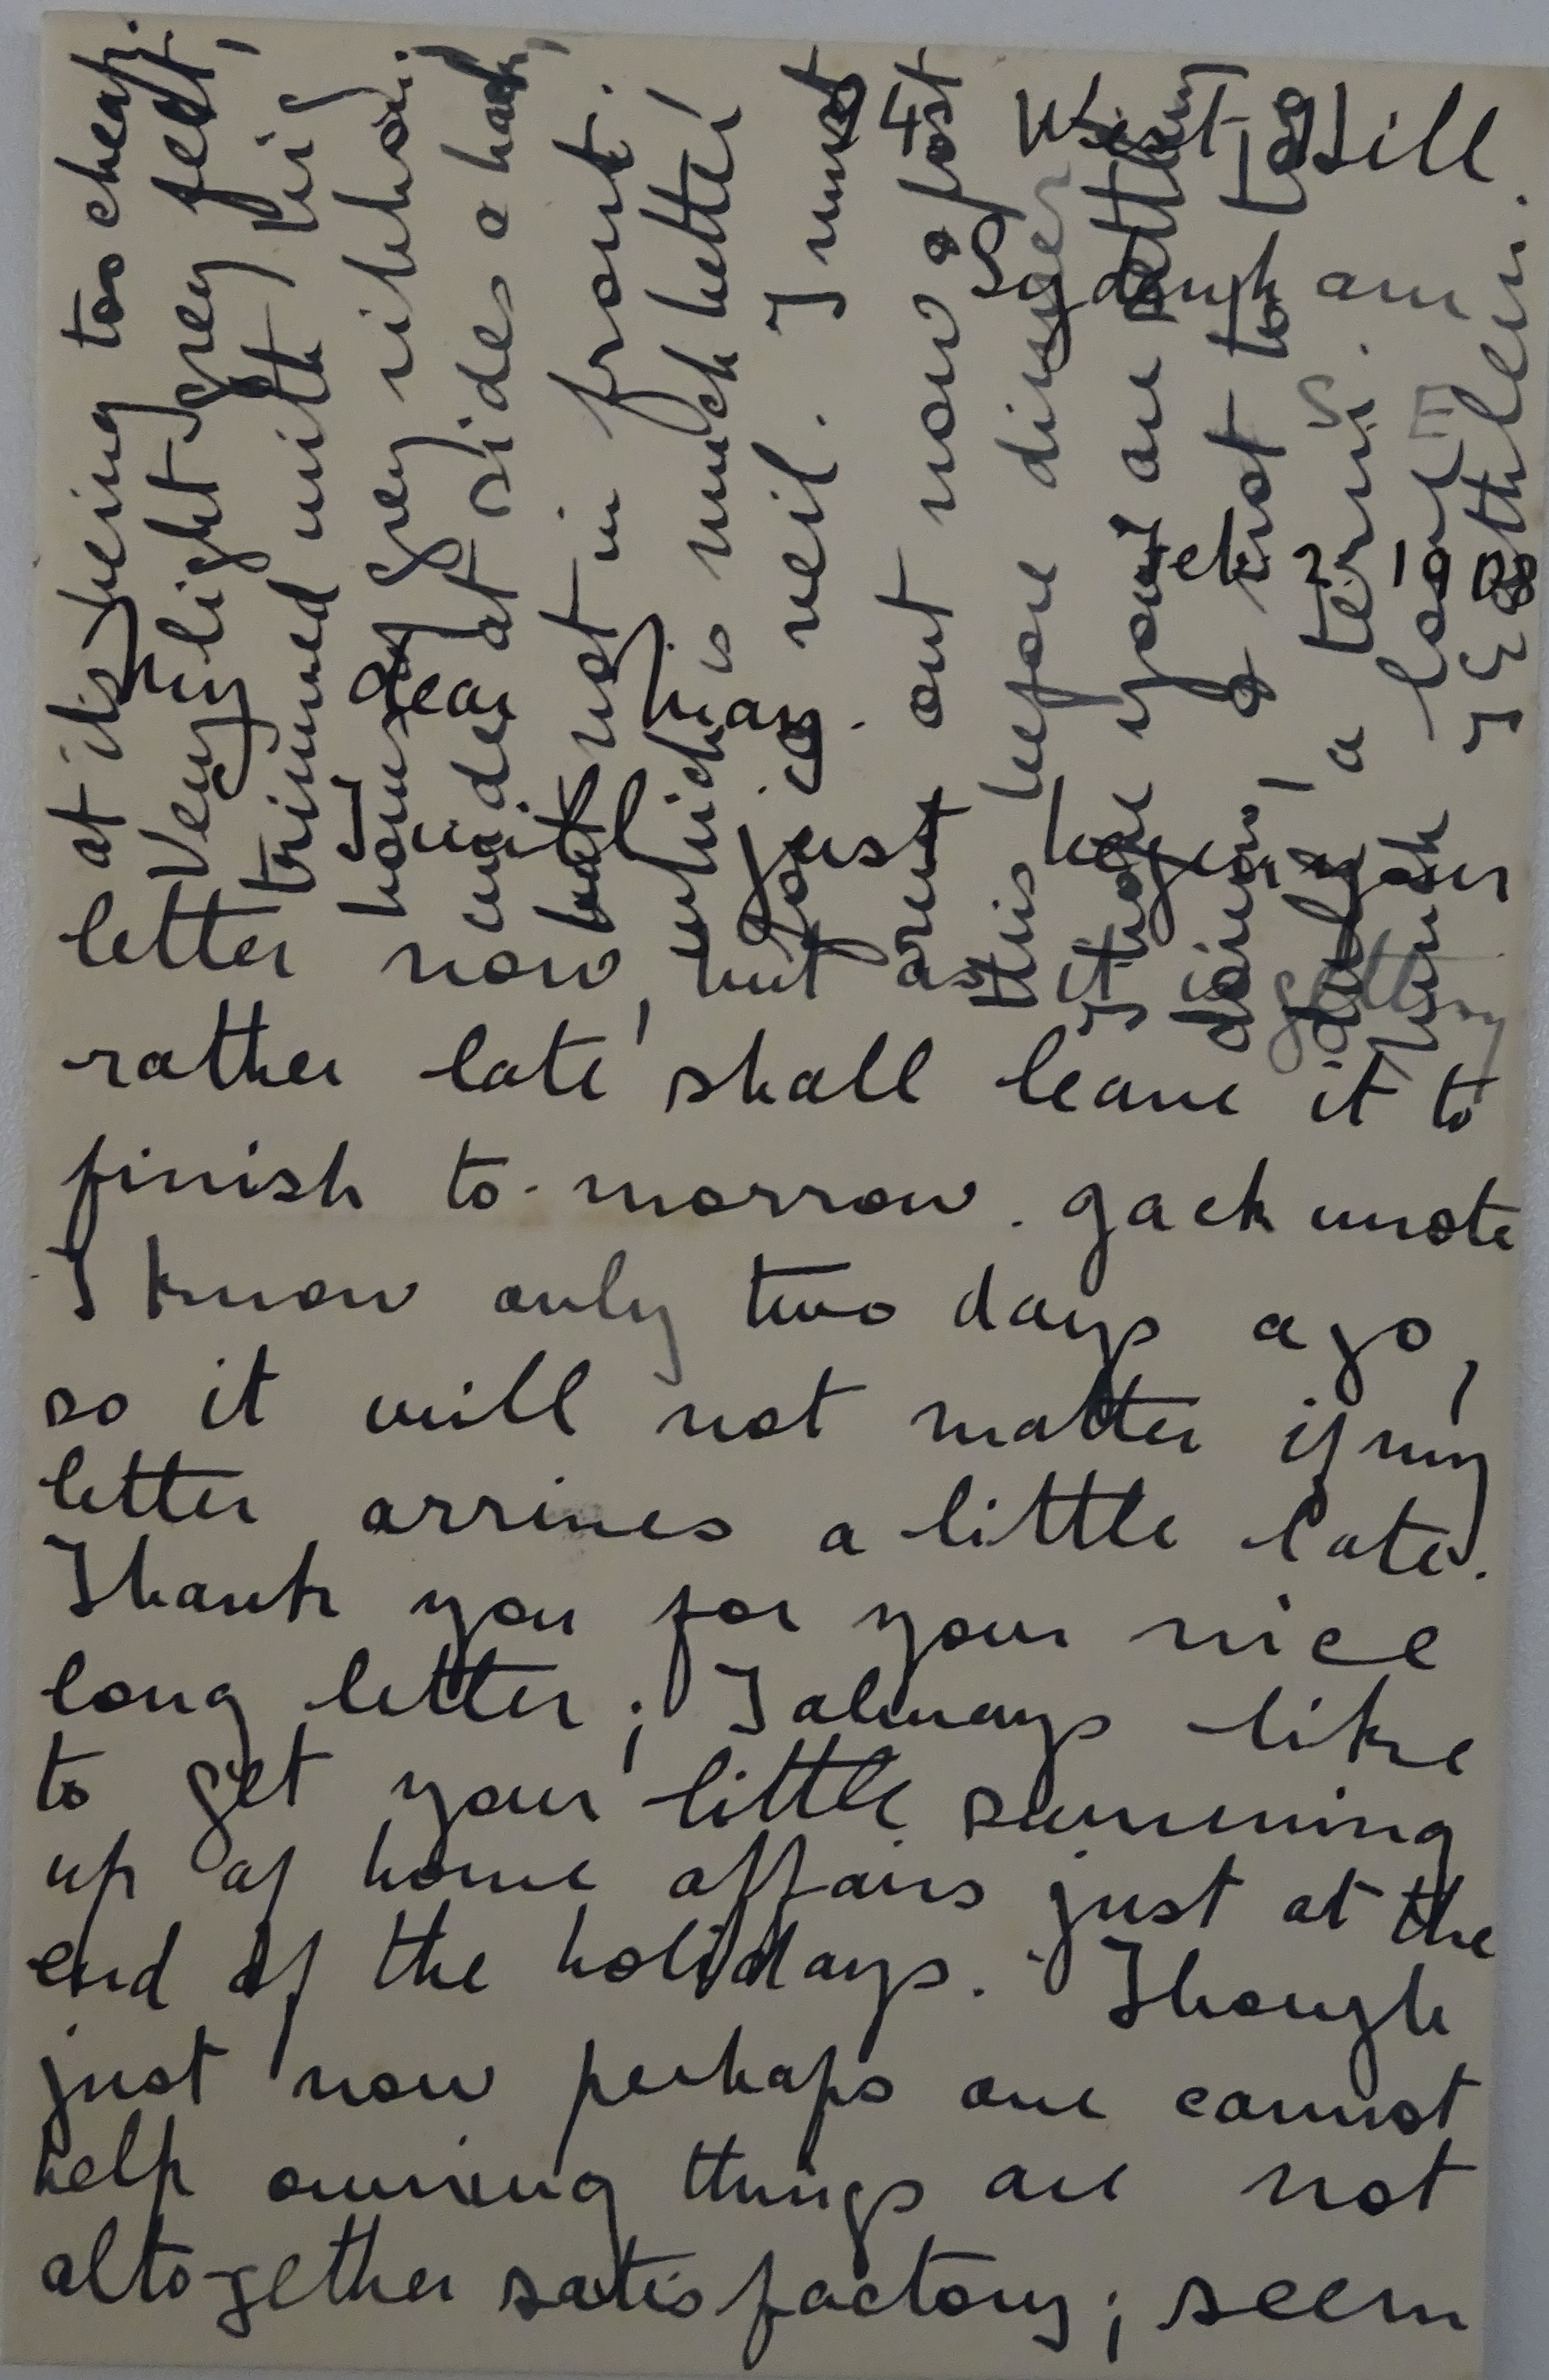 14 West Hill.
Sydenham
S. E.
My dear May.
I will just begin your
letter now, but as it is getting
rather late shall leave it to
finish to-morrow. Jack wrote
I know only two days ago,
so it will not matter if my
letter arrives a little late.
Thank you for your nice
long letter; I always like
to get your little summing
up of home affairs just at the
end of the holidays. Though
just now perhaps one cannot
help owning things are not
altogether satisfactory; seem
at its being too cheap.
Very light grey felt,
trimmed with big
bows of grey ribbon;
wide at sides & back,
but not in front.
which is much better
for a veil. I must
run out now & post
this before dinner
I hope you are settling
down, & not to
a term.
much love
Kathleen.